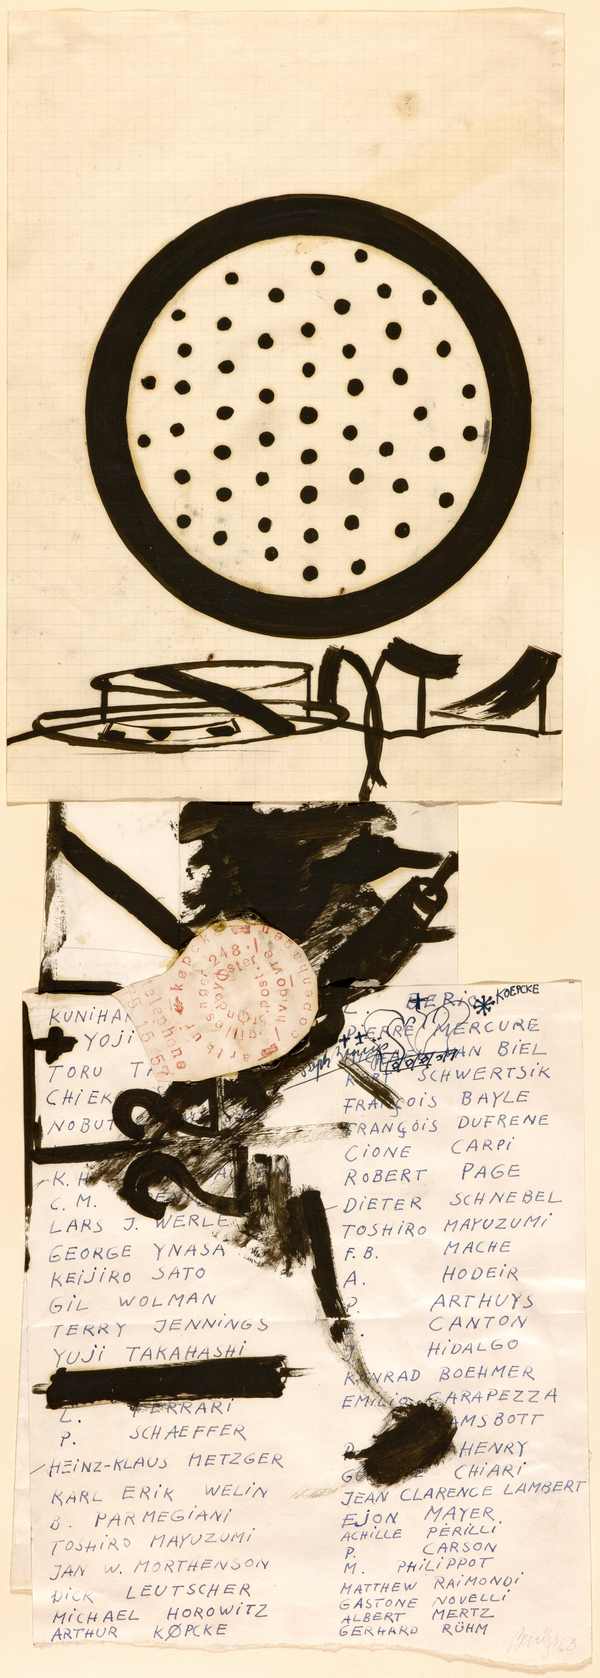 KUNIHAR
YOJI
TORU
CHIEK
NOBUT
K. H
C. M.
LARS J. WERLE
GEORGE YNASA
KEIJIRO SATO
GIL WOLMAN
TERRY JENNINGS
YUJI TAKAHASHI
L. FERRARI
P. SCHAEFFER
HEINZ-KLAUS METZGER
KARL ERIK WELIN
B. PARMEGIANI
TOSHIRO MAYUZUMI
JAN W. MORTHENSON
DICK LEUTSCHER
MICHAEL HOROWITZ
ARTHUR KØPCKE
KOEPCKE
PIERRE MERCURE
AN BIEL
KURT SCHWERTSIK
FRANÇOIS BAYLE
FRANÇOIS DUFRENE
CIONE CARPI
ROBERT PAGE
DIETER SCHNEBEL
TOSHIRO MAYUZUMI
F.B. MACHE
A. HODEIR
P. ARTHUYS
CANTON
HIDALGO
KONRAD BOEHMER
EMILIO GARAPEZZA
AMSBOTT
HENRY
CHIARI
JEAN CLARENCE LAMBERT
EJON MAYER
ACHILLE PERILLI
P. CARSON
M. PHILIPPOT
MATTHEW RAIMONDI
GASTONE NOVELLI
ALBERT MERTZ
GERHARD RÜHM
telephone
køpcke